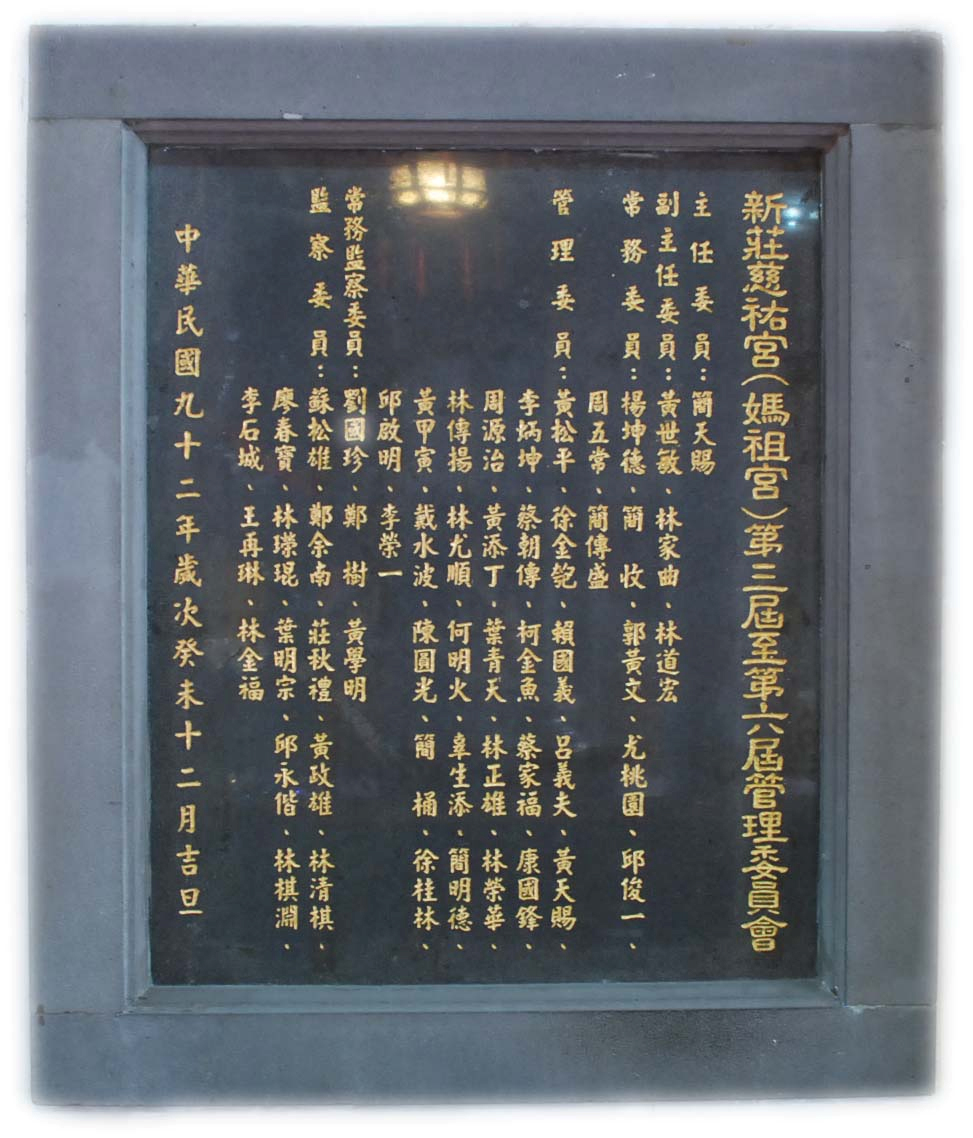 新莊慈祐宮（媽祖宮）第三屆至第六屆管理委員會
主任委員：簡天賜
副主任委員：黃世敏、林家曲、林道宏
常務委員：楊坤德、簡　㐰、郭黃文、尤桃園、邱俊一、
周五常、簡傳盛
管理委員：黃松平、徐金㐌、賴國義、呂義夫、黃天賜、
李炳坤、蔡朝傳、柯金魚、蔡家福、康國鋒、
周源治、黃添丁、葉青天、林正雄、林榮華、
林傳揚、林尤順、何明火、辜生添、簡明德、
黃甲寅、戴水波、陳圓光、簡　桶、徐桂林、
邱啟明、李榮一
常務監察委員：劉國珍、鄭　樹、黃學明
監察委員：蘇松雄、鄭余南、莊秋禮、黃政雄、林清棋、
廖春寶、林璟琨、葉明宗、邱永偕、林棋淵、
李石城、王再琳、林金福
中華民國九十二年歲次癸未十二月吉旦